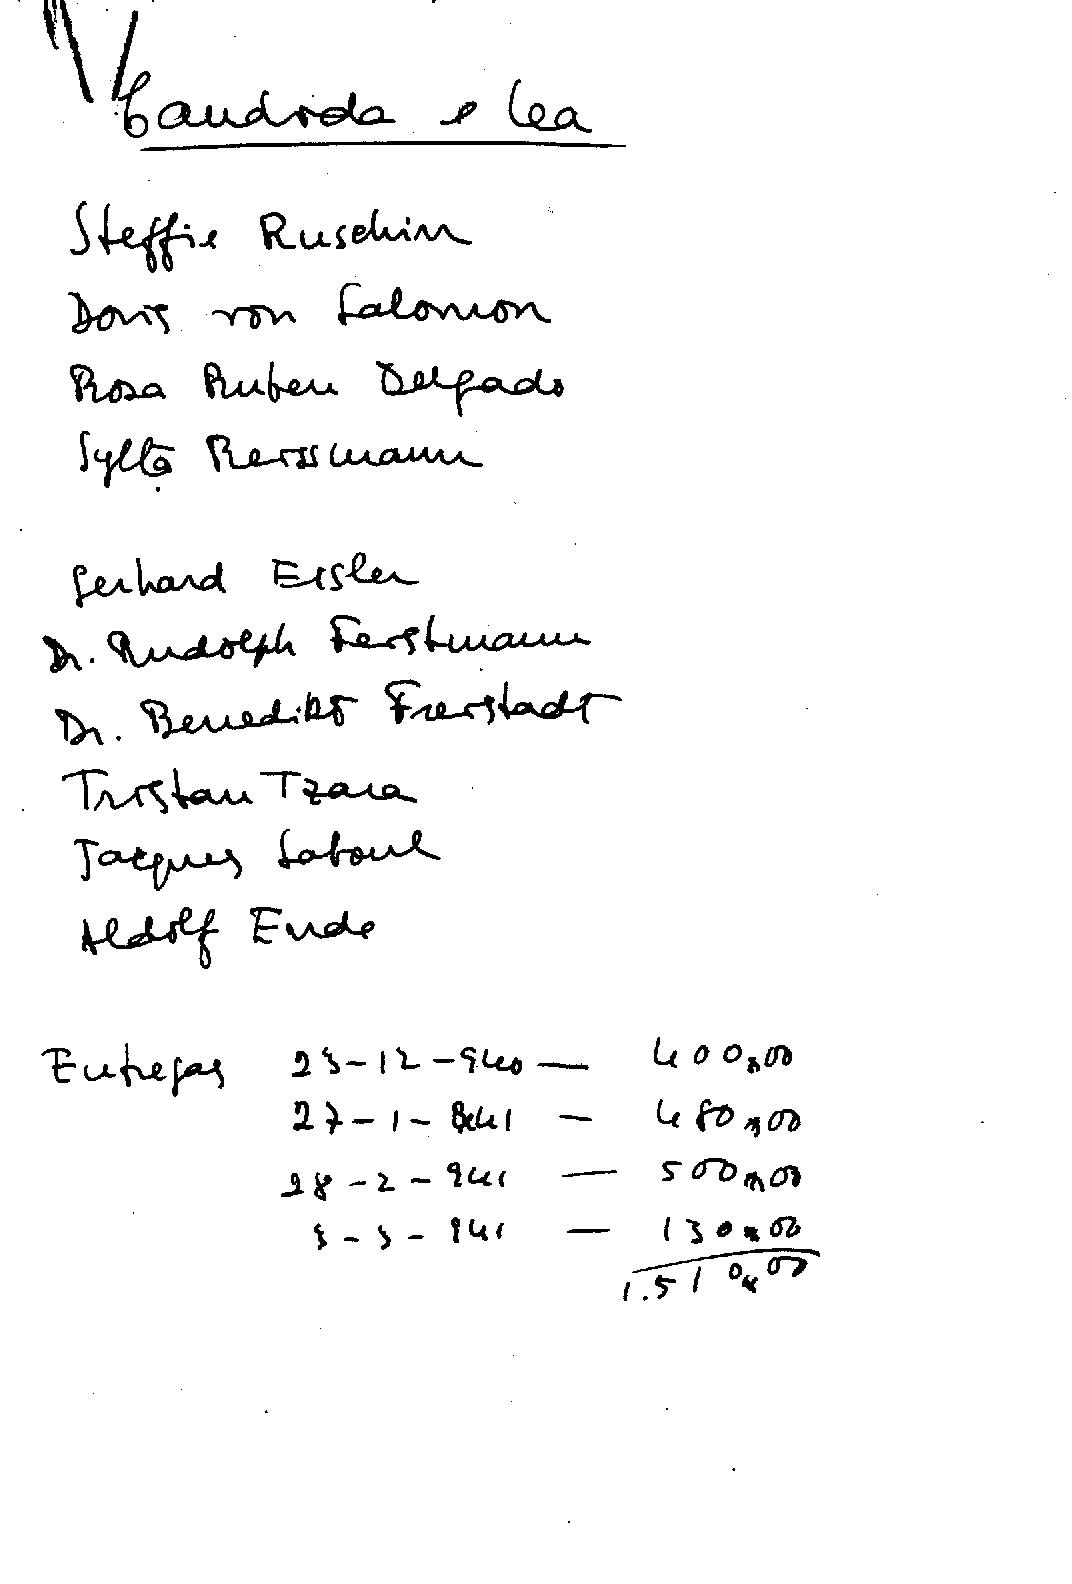 Candida e Lea
Steffie Ruschin
Doris von Salomon
Rosa Ruben Delgado
Sylta Reissmann
Gerhard Eisler
Dr. Rudolph Feistmann
Dr. Benedikt Freistadt
Tristan Tzara
Jacques
Aldolf Ende
Entregas 23-12-940 — 400,00
27-1-941 — 480,00
28-2-941 — 500,00
3-3-941 — 130,00
1.510,00